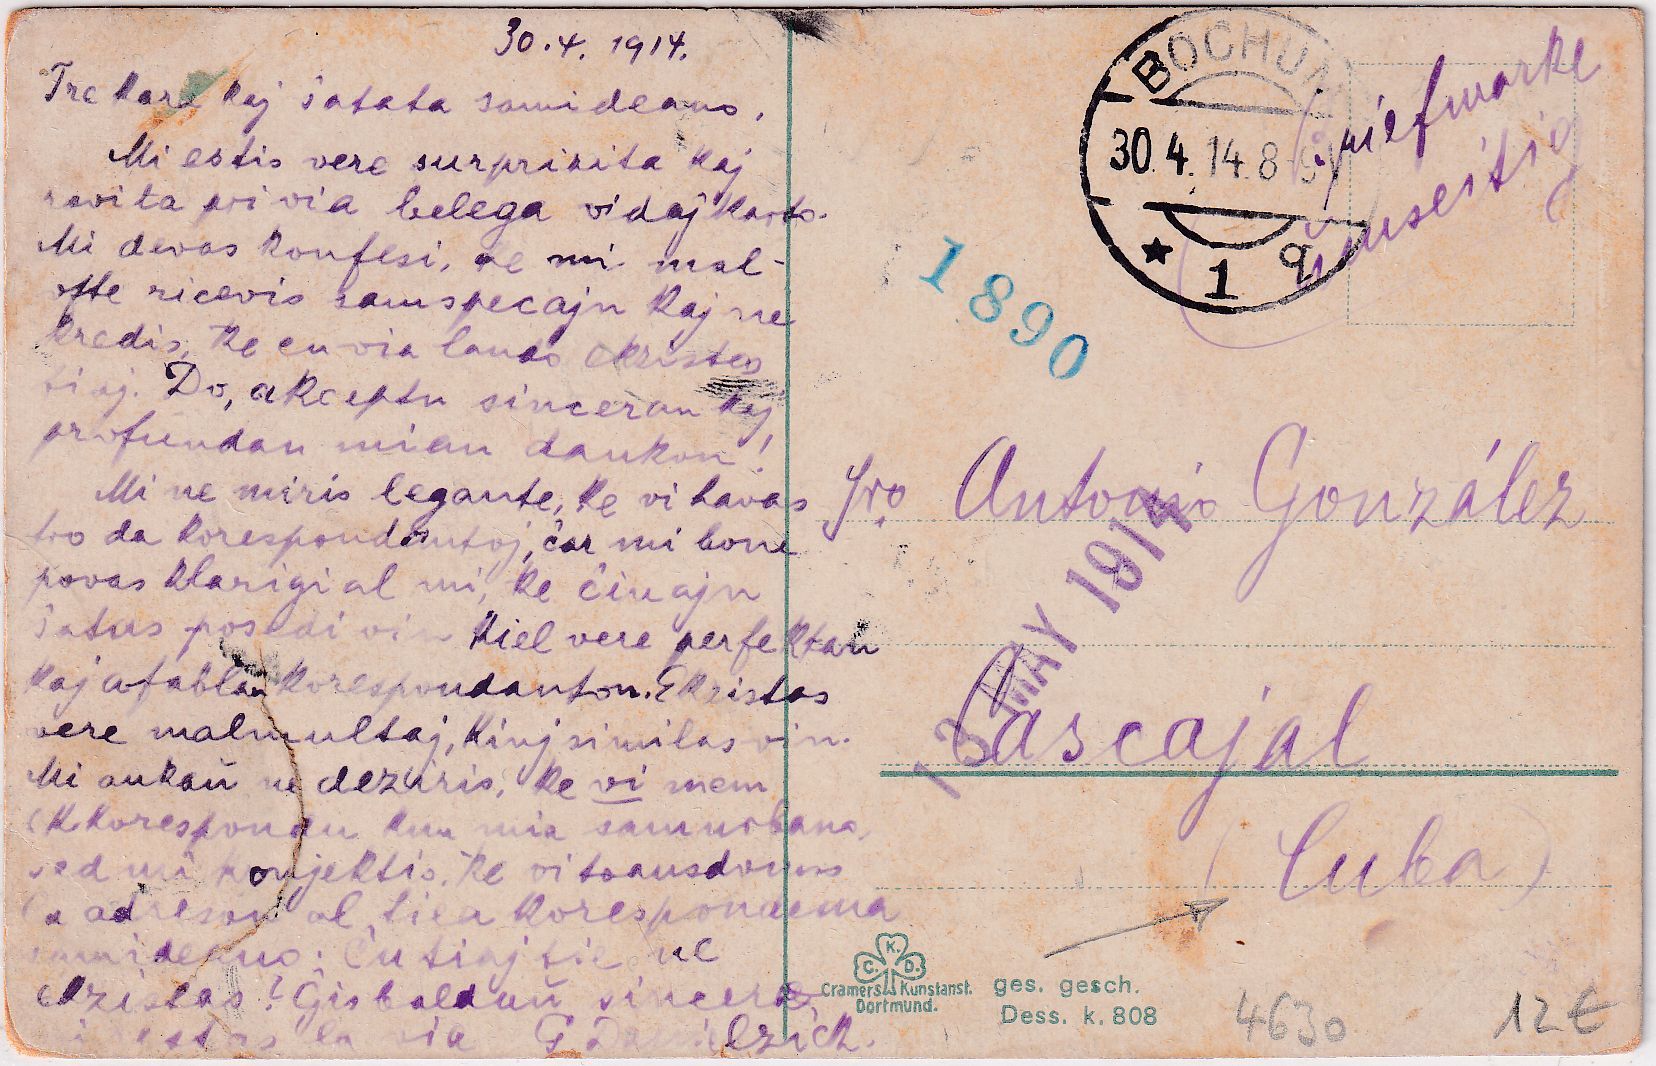 30.4. 1914.
Tre kara kaj ŝatata samideano,
Mi estis vere surprizita kaj
ravita pri via belega vidajkarto.
Mi devas konfesi, ke mi mal-
ofte ricevis samspecajn kaj ne
kredis, ke en via lando ekzistas
tiaj. Do, akceptu sinceran kaj
profundan mian dankon!
Mi ne miris legante, ke vi havas
tro da korespondantoj, ĉar mi bone
povas klarigi al mi, ke ĉiu ajn
ŝatus posedi vin kiel vere perfektan
kaj afablan korespondanton. Ekzistas
vere malmultaj, kiuj similas vin.
Mi ankaŭ ne deziris, ke vi mem
korespondu kun mia samurbano,
sed mi konjektis, ke vi transdonus
la adreson al tiea korespondema
samideano; ĉu tiaj tie ne
ekzistas? Ĝis baldaŭ sincere
mi estas la via G
BOCHUM
30.4.14.8-9
★ 1 q
Briefmarke
umseitig
1890
Sro Antonio González
13 MAY 1914
Cascajal
(Cuba)
C. K. D.
Cramers Kunstanst.
Dortmund.
ges. gesch.
Dess. k. 808
4630
12€